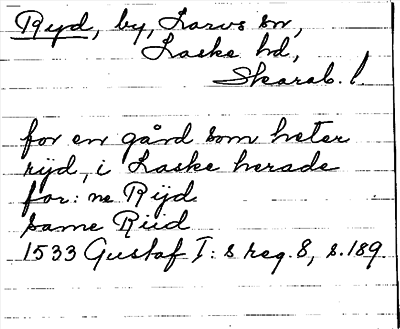 Ryd, by, Larvs sn,
Laske hd,
Skarab. l.
for en gård som heter
rijd, i Laske herade
for: ne Rijd
same Riid
1533 Gustaf I: s reg. 8, s. 189.